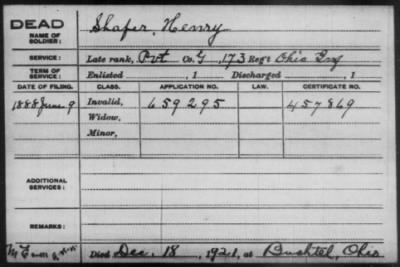 DEAD
NAME OF SOLDIER: Shafer, Henry
SERVICE: Late rank, Pvt Co. G, 173 Reg't Ohio Inf
TERM OF SERVICE: Enlisted , 1 Discharged , 1
DATE OF FILING. CLASS. APPLICATION NO. LAW. CERTIFICATE NO.
1888 June 9 Invalid, 659295 457869
Widow,
Minor,
ADDITIONAL SERVICES:
REMARKS:
Died Dec. 18, 1921, at Buchtel, Ohio